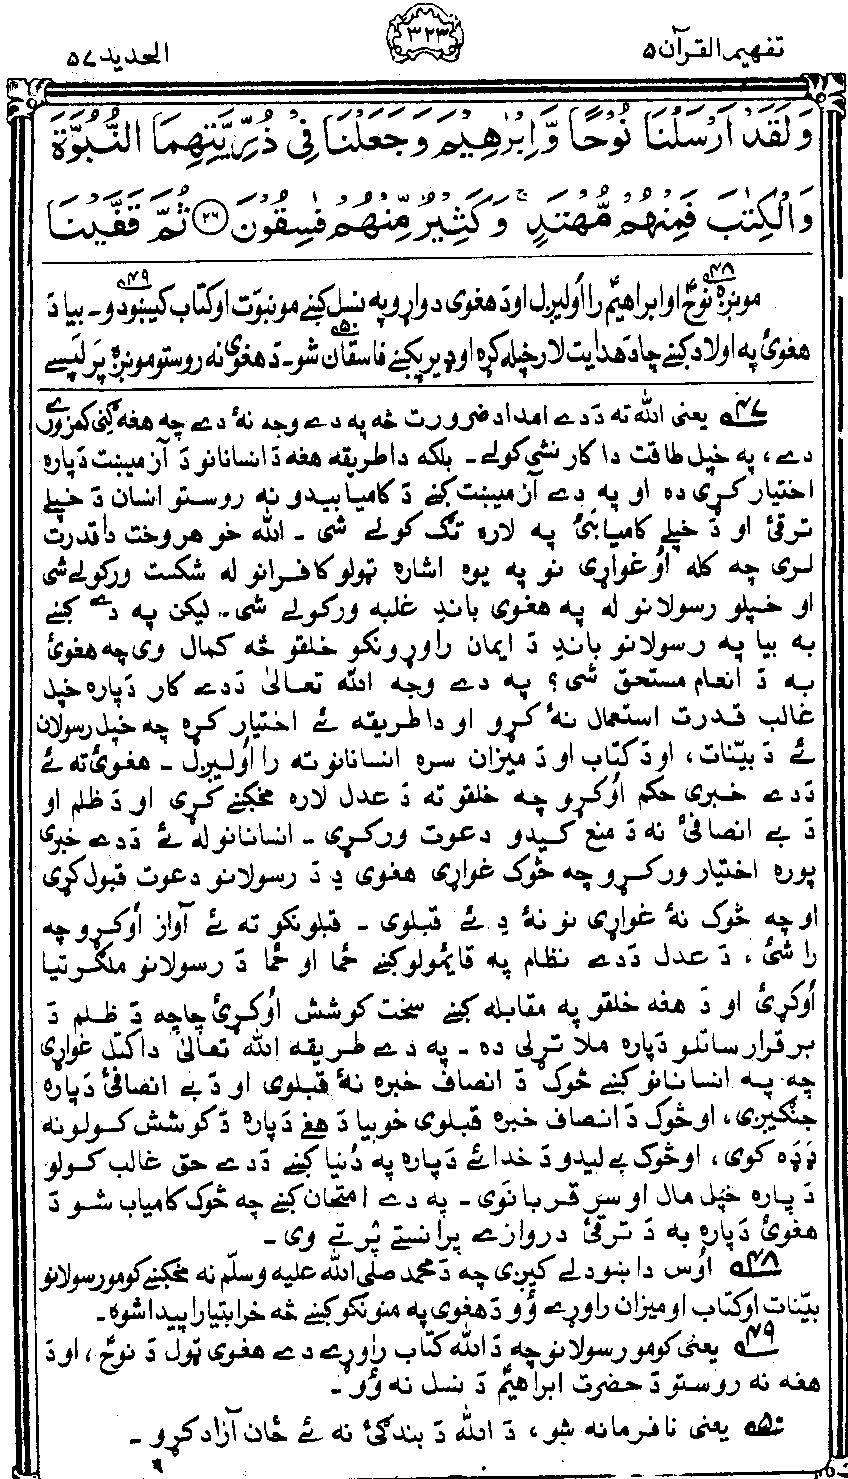 تفهيم القرآن ۵
۳۲۳
الحديد ۵۷
وَلَقَدْ اَرْسَلْنَا نُوْحًا وَّاِبْرٰهِيْمَ وَجَعَلْنَا فِيْ ذُرِّيَّتِهِمَا النُّبُوَّةَ
وَالْكِتٰبَ فَمِنْهُمْ مُّهْتَدٍ ۚ وَكَثِيْرٌ مِّنْهُمْ فٰسِقُوْنَ ۲۶ ثُمَّ قَفَّيْنَا
مونږه نوحؑ ۴۸ او ابراهيمؑ را اوليږل او د هغوی دواړو په نسل کښے مو نبوّت او کتاب کيښودو ۴۹۔ بيا د
هغویٔ په اولاد کښے چا د هدايت لار خپله کړه او ډير پکښے فاسقان ۵۰ شو۔ د هغوی نه روستو مونږه پر لپسے
۴۷ يعنی الله ته د دے امداد ضرورت څه په دے وجه نهٔ دے چه هغه ګنی کمزورے
دے، په خپل طاقت دا کار نشی کولے۔ بلکه دا طريقه هغه د انسانانو د آزميښت دپاره
اختيار کړی ده او په دے آزميښت کښے د کاميابيدو نه روستو انسان د خپلے
ترقیٔ او د خپلے کاميابیٔ په لاره تګ کولے شی۔ الله خو هر وخت دا قدرت
لری چه کله اوُغواړی نو په يوه اشاره ټولو کافرانو له شکست ورکولے شی
او خپلو رسولانو له په هغوی باندِ غلبه ورکولے شی۔ ليکن په دے کښے
به بيا په رسولانو باندِ د ايمان راوړونکو خلقو څه کمال وی چه هغویٔ
به د انعام مستحق شی؟ په دے وجه الله تعالیٰ د دے کار دپاره خپل
غالب قدرت استعمال نهٔ کړو او دا طريقه ئے اختيار کړه چه خپل رسولان
ئے د بيّنات، او د کتاب او د ميزان سره انسانانو ته را اوُليږل۔ هغویٔ ته ئے
د دے خبرې حکم اوُکړو چه خلقو ته د عدل لاره مخکښے کړی او د ظلم او
د بے انصافیٔ نه د منع کيدو دعوت ورکړی۔ انسانانو له ئے د دے خبرې
پوره اختيار ورکړو چه څوک غواړی هغوی دِ د رسولانو دعوت قبول کړی
او چه څوک نهٔ غواړی نو نهٔ دِ ئے قبلوی۔ قبلونکو ته ئے آواز اوُکړو چه
را شیٔ، د عدل د دے نظام په قائمولو کښے ځما او ځما د رسولانو ملګرتيا
اوُکړیٔ او د هغه خلقو په مقابله کښے سخت کوشش اوُکړیٔ چا چه د ظلم د
برقرار ساتلو دپاره ملا تړلی ده۔ په دے طريقه الله تعالیٰ دا کتل غواړی
چه په انسانانو کښے څوک د انصاف خبره نهٔ قبلوی او د بے انصافیٔ دپاره
جنګيږی، او څوک د انصاف خبره قبلوی خو بيا د هغے دپاره د کوشش کولو نه
ډډه کوی، او څوک بے ليدو د خدائے دپاره په دُنيا کښے د دے حق غالب کولو
دپاره خپل مال او سر قربانوی۔ په دے امتحان کښے چه څوک کامياب شو د
هغویٔ دپاره به د ترقیٔ دروازے پرانستے پرتے وی۔
۴۸ اوُس دا ښودلے کيږی چه د محمد صلی الله عليه وسلّم نه مخکښے کومو رسولانو
بيّنات او کتاب او ميزان راوړے وُو د هغوی په منونکو کښے څه خرابتيا را پيدا شوه۔
۴۹ يعنی کومو رسولانو چه د الله کتاب راوړے دے هغوی ټول د نوحؑ، او د
هغه نه روستو د حضرت ابراهيمؑ د نسل نه وُو۔
۵۰ يعنی نافرمانه شو، د الله د بندګیٔ نه ئے ځان آزاد کړو۔